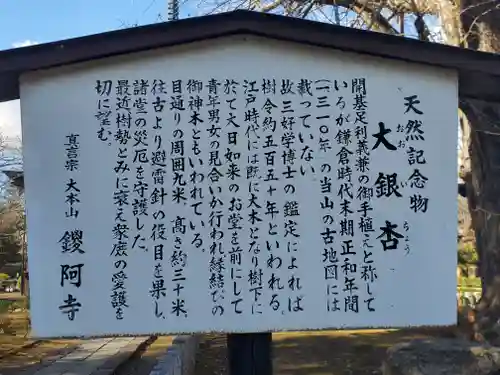 天然記念物
大銀杏
おおいちょう
開基足利義兼の御手植えと称して
いるが鎌倉時代末期正和年間
(一三一〇年)の当山の古地図には
載っていない。
故三好学博士の鑑定によれば
樹令約五百五十年といわれる。
江戸時代には既に大木となり樹下に
於て大日如来のお堂を前にして
青年男女の見合いが行われ縁結びの
御神木ともいわれている。
目通りの周囲九米、高さ約三十米、
往古より避雷針の役目を果し、
諸堂の災厄を守護した。
最近樹勢とみに衰え衆庶の愛護を
切に望む。
真言宗大本山
鑁阿寺